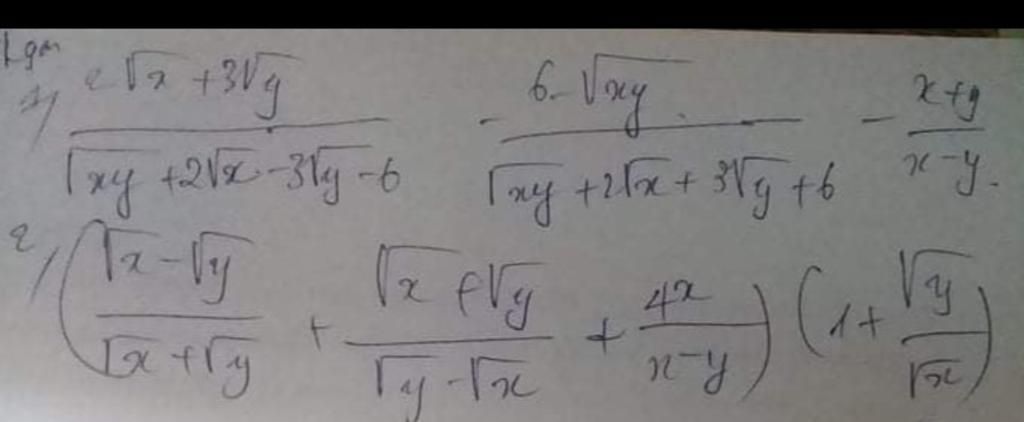 1/ (2√x + 3√y)/(√xy + 2√x - 3√y - 6) - (6 - √xy)/(√xy + 2√x + 3√y + 6) - (x + y)/(x - y).
2/ ((√x - √y)/(√x + √y) + (√x + √y)/(√y - √x) + 4x/(x - y)) (1 + √y/√x)